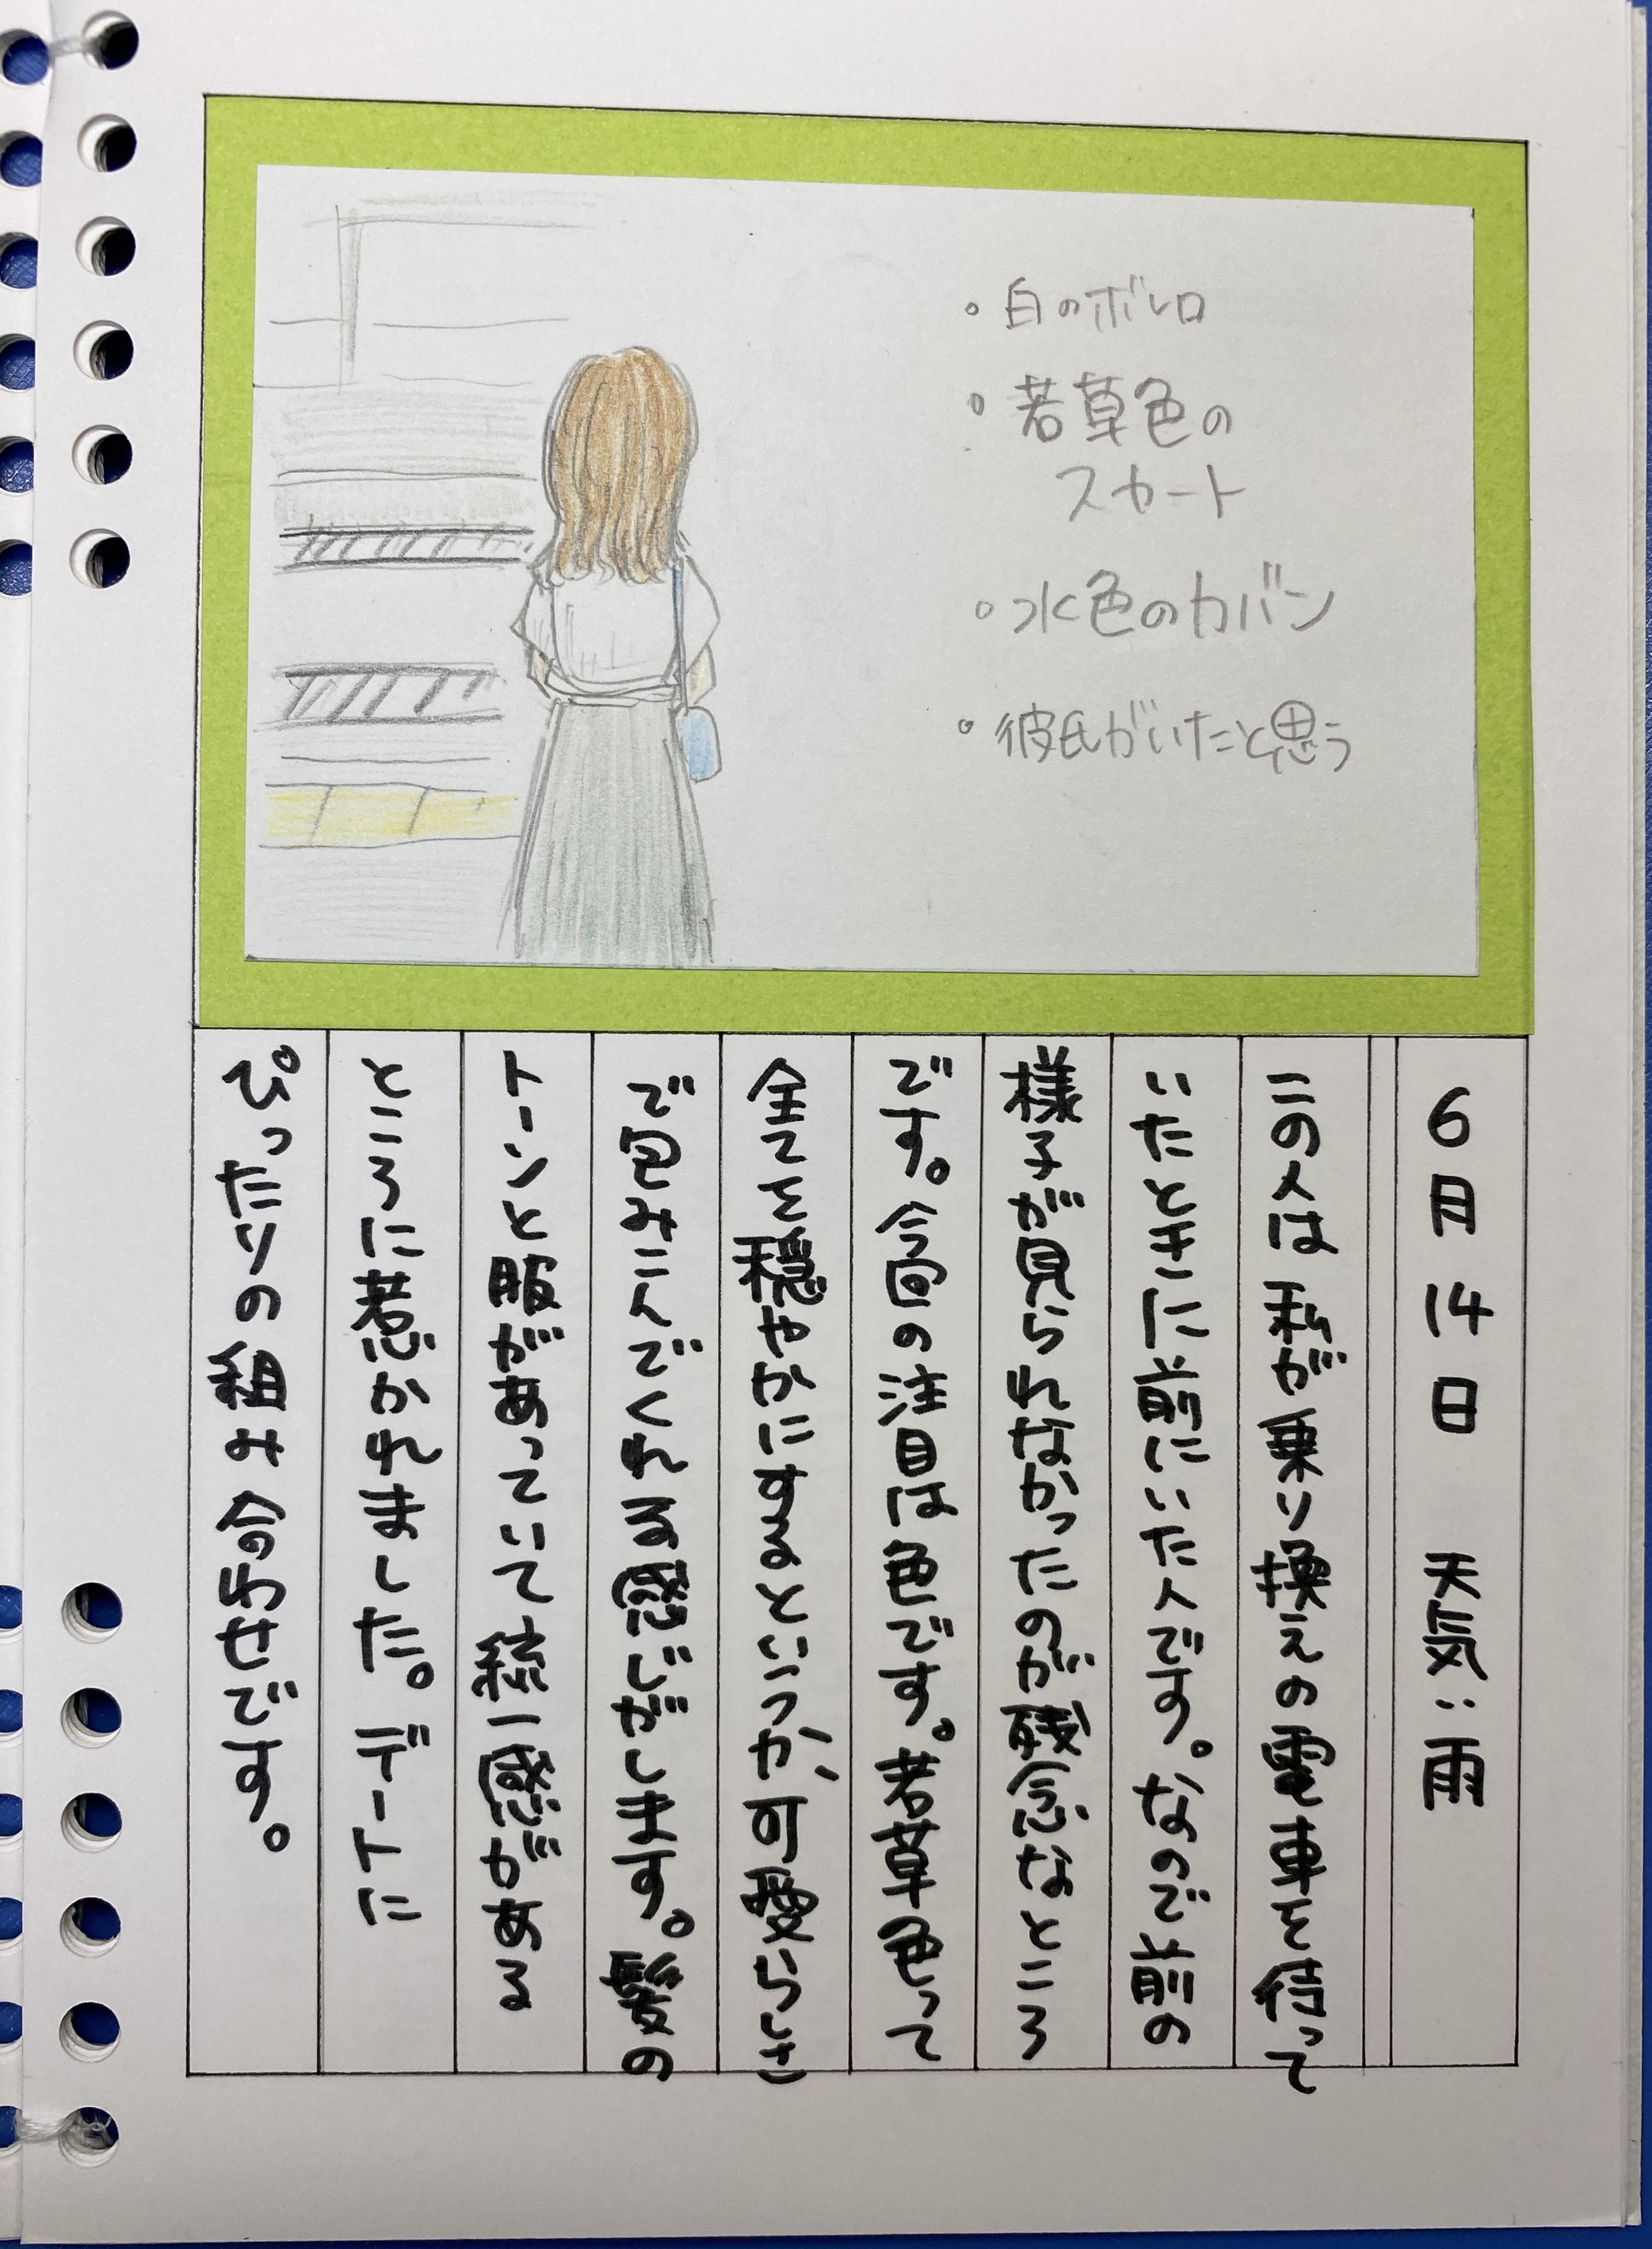 ・白のボレロ
・若草色の
スカート
・水色のカバン
・彼氏がいたと思う
6月14日 天気：雨
この人は私が乗り換えの電車を待って
いたときに前にいた人です。なので前の
様子が見られなかったのが残念なところ
です。今回の注目は色です。若草色って
全てを穏やかにするというか、可愛らしさ
で包みこんでくれる感じがします。髪の
トーンと服があっていて統一感がある
ところに惹かれました。デートに
ぴったりの組み合わせです。